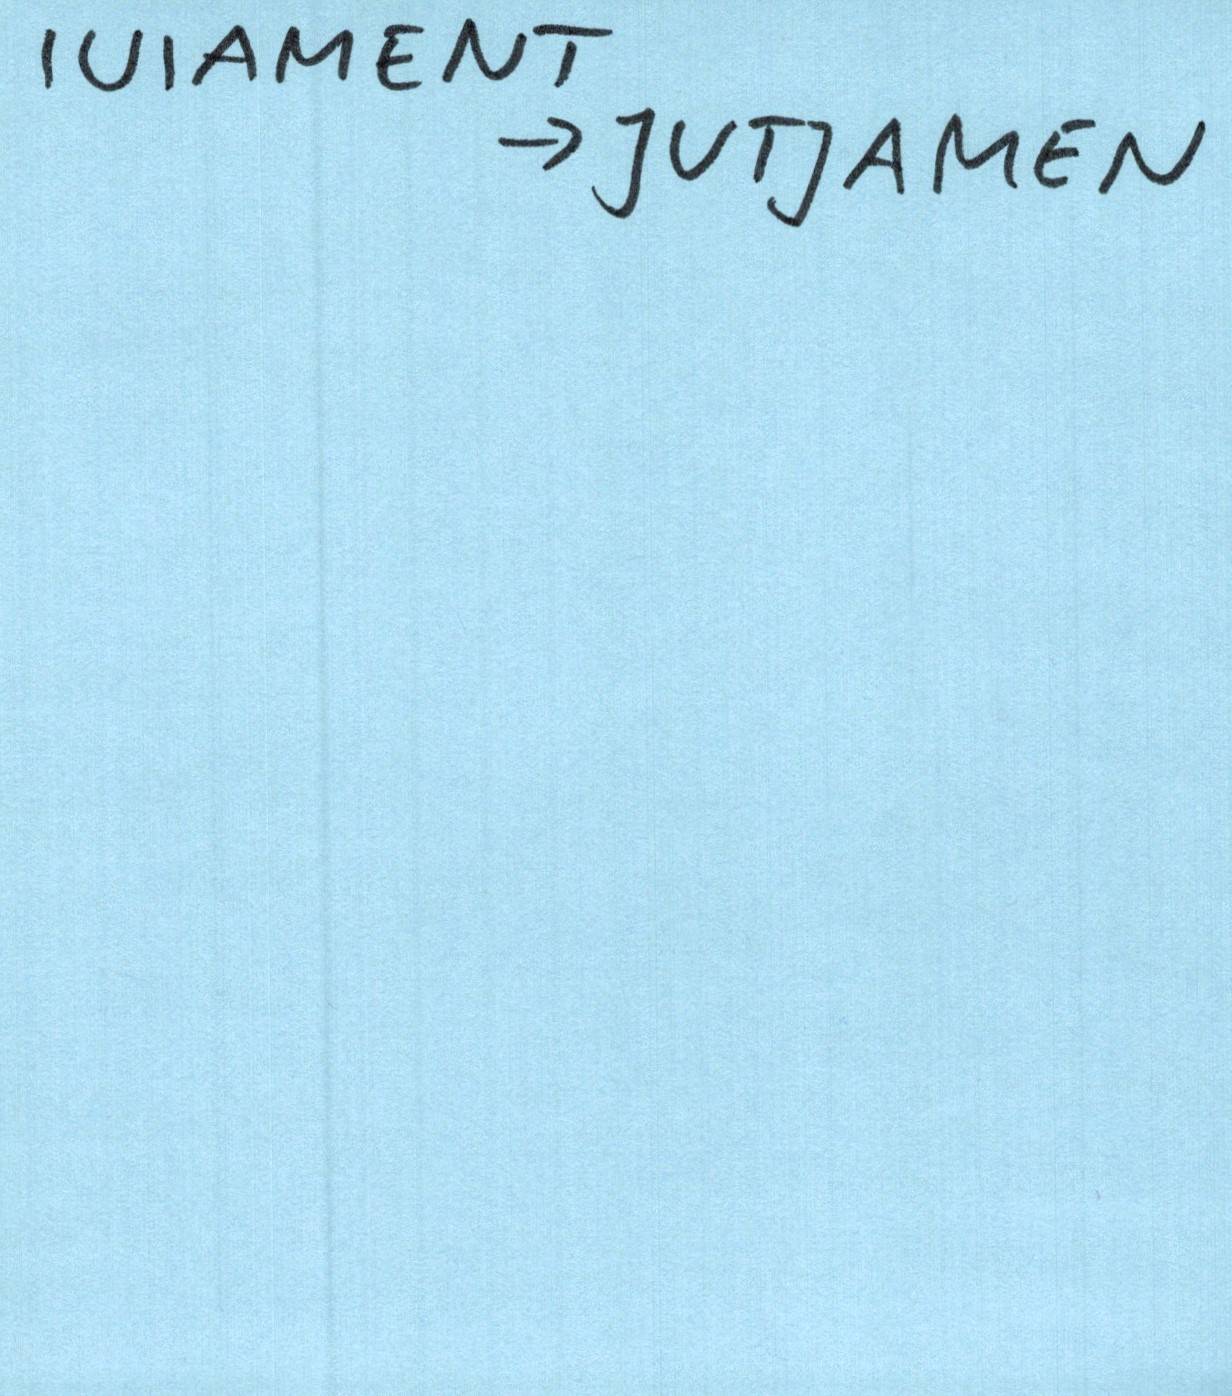 IUIAMENT
→ JUTJAMEN